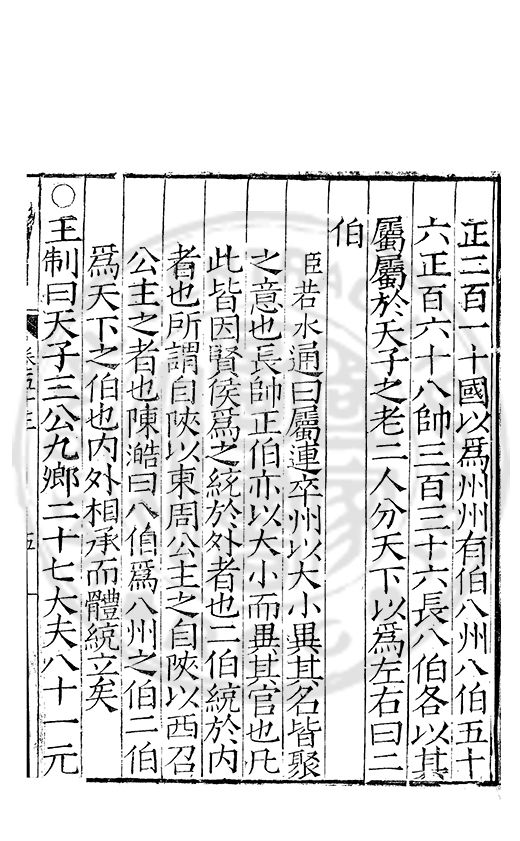 正三百一十國以爲州州有伯八州八伯五十
六正百六十八帥三百三十六長八伯各以其
屬屬於天子之老二人分天下以爲左右曰二
伯
臣若水通曰屬連卒州以大小異其名皆聚
之意也長帥正伯亦以大小而異其官也凡
此皆因賢侯爲之統於外者也二伯統於內
者也所謂自陝以東周公主之自陝以西召
公主之者也陳澔曰八伯爲八州之伯二伯
爲天下之伯也內外相承而體統立矣
○王制曰天子三公九鄉二十七大夫八十一元
卷五十三
五